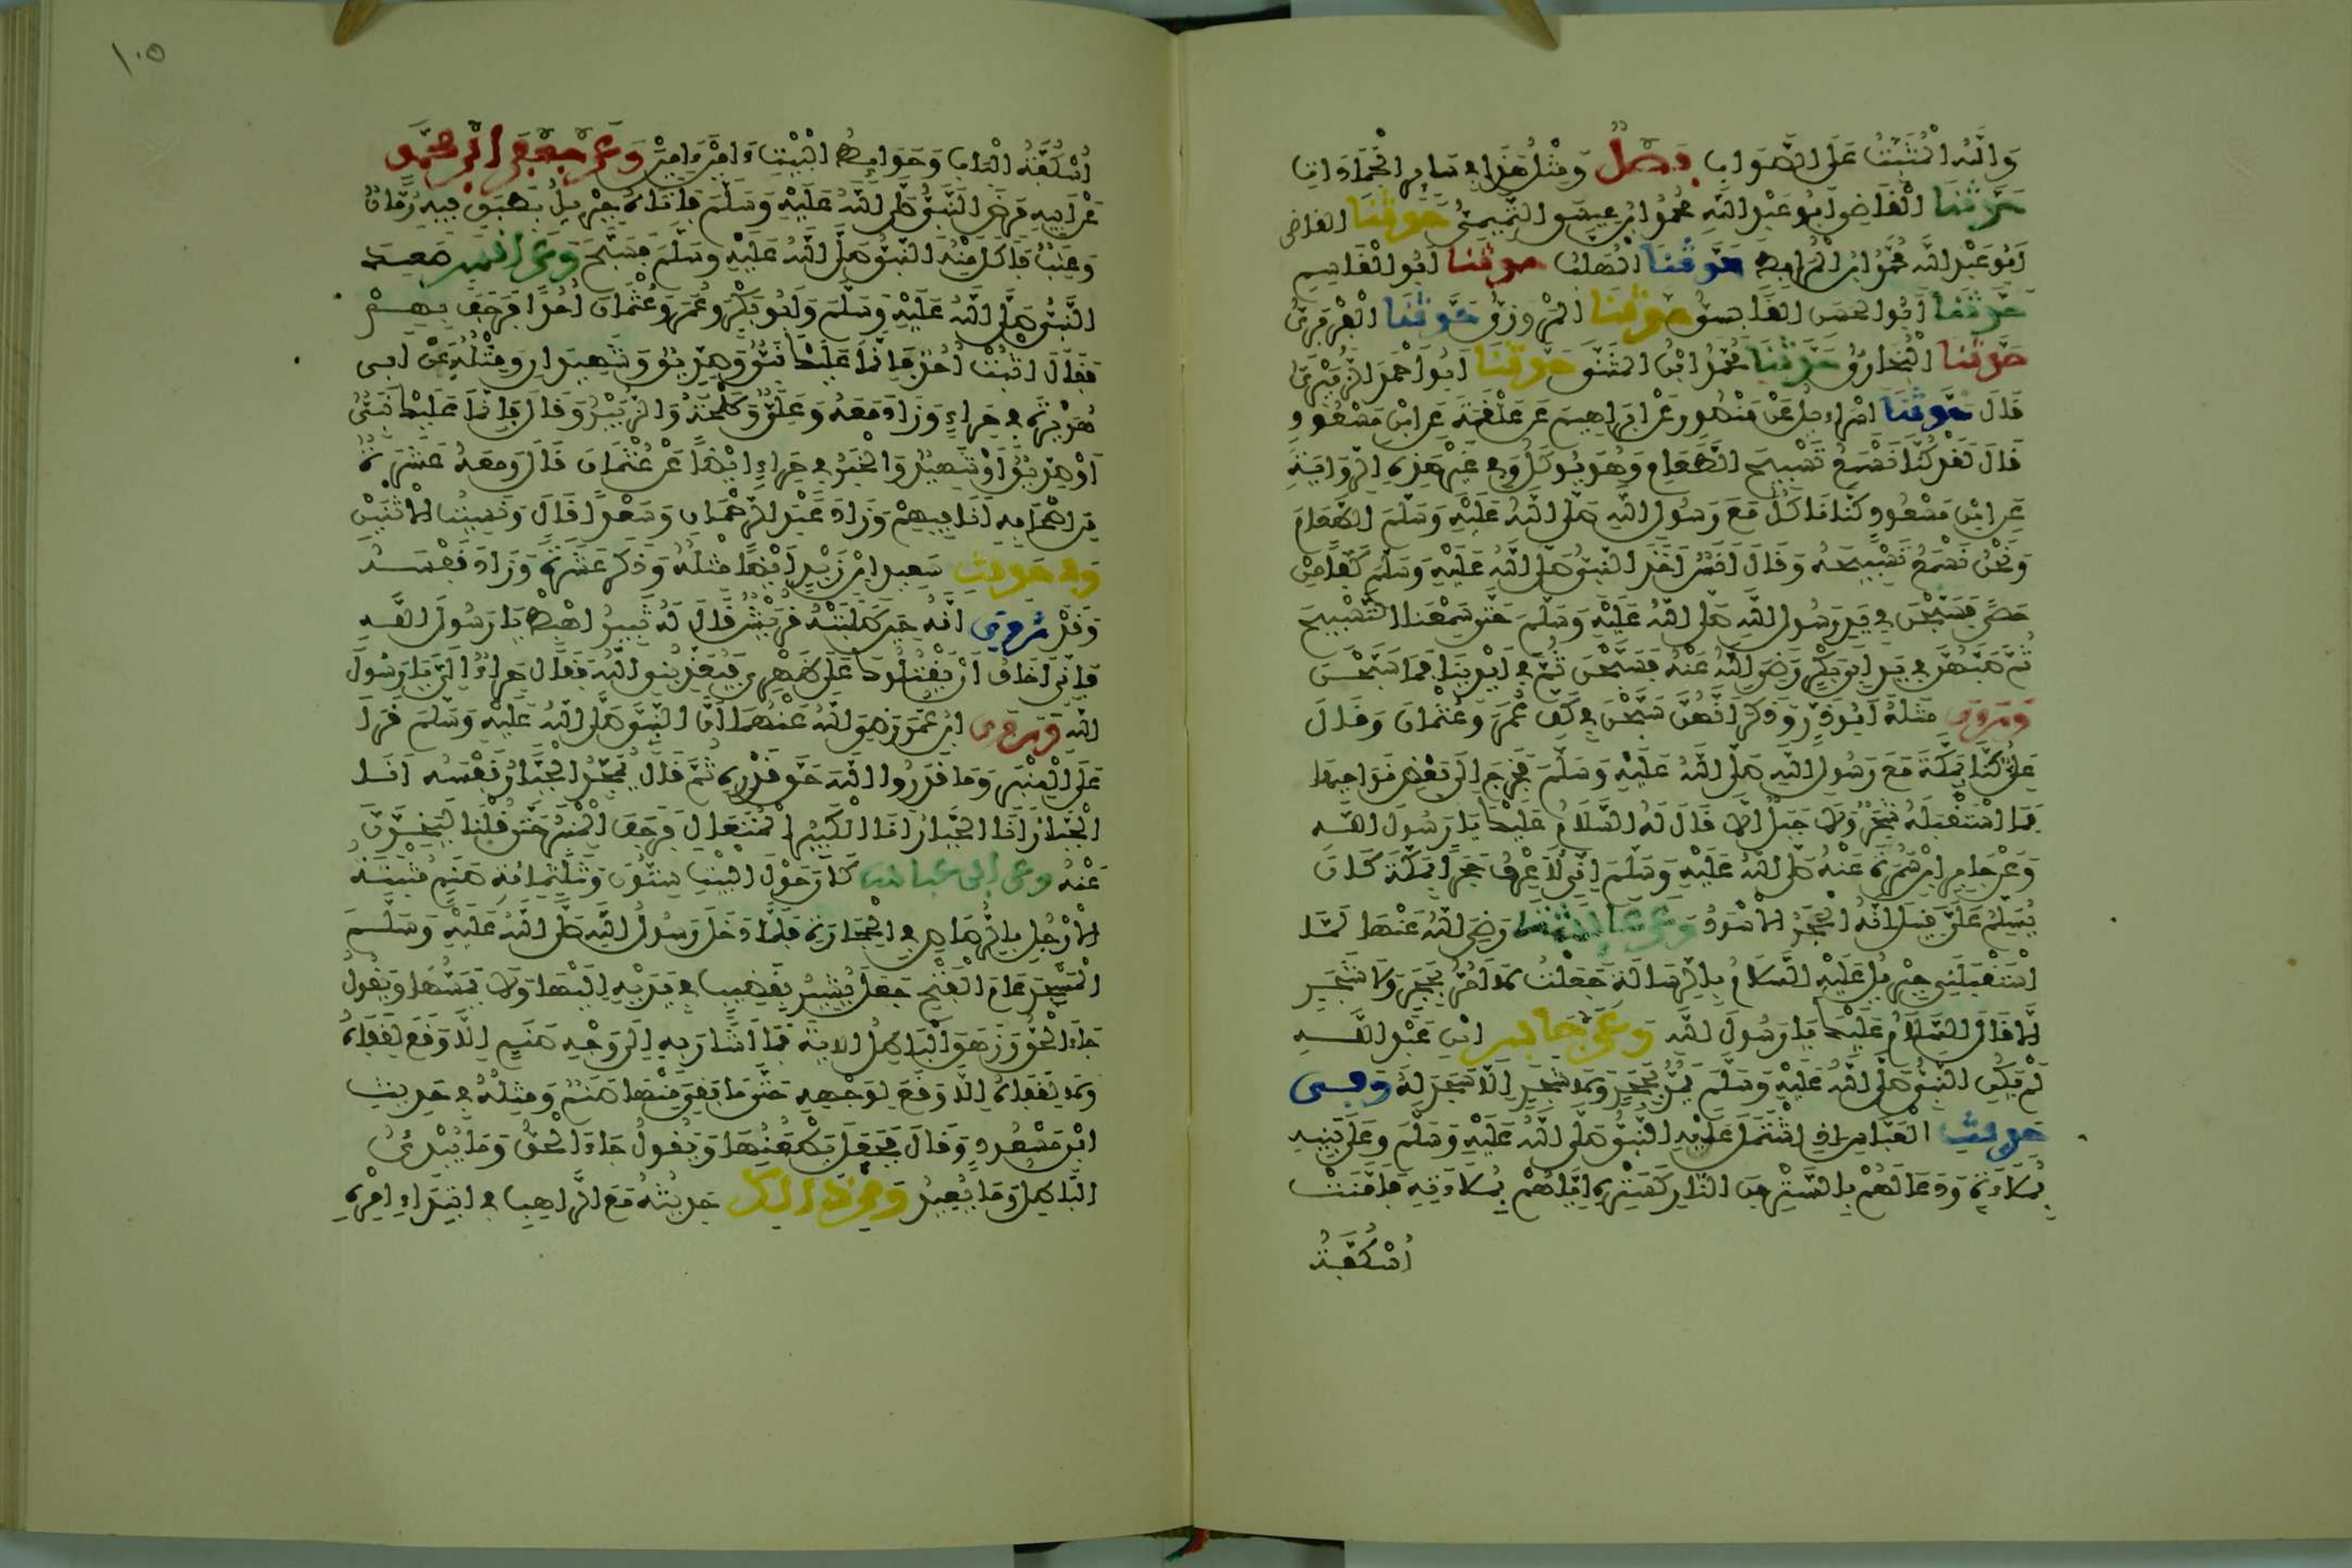 وَاللَّهُ الْمُثَبِّتُ عَلَى الصَّوَابِ فصل وَمِثْلُ هَذَا فِي سَائِرِ الْجَمَادَاتِ
حدثنا الْقَاضِي أَبُو عَبْدِ اللَّهِ مُحَمَّدُ ابْنُ عِيسَى التَّمِيمِيُّ حدثنا القاضي
أَبُو عَبْدِ اللَّهِ مُحَمَّدُ ابْنُ الْمُرَابِطِ حدثنا الْمُهَلَّبُ حدثنا أَبُو الْقَاسِمِ
حدثنا أَبُو الْحَسَنِ الْقَابِسِيُّ حدثنا الْمَرْوَزِيُّ حدثنا الْفَرَبْرِيُّ
حدثنا الْبُخَارِيُّ حدثنا مُحَمَّدُ ابْنُ الْمُثَنَّى حدثنا أَبُو أَحْمَدَ الزُّبَيْرِيُّ
قَالَ حدثنا إِسْرَاءِيلُ عَنْ مَنْصُورٍ عَنْ إِبْرَاهِيمَ عَنْ عَلْقَمَةَ عَنِ ابْنِ مَسْعُودٍ
قَالَ لَقَدْ كُنَّا نَسْمَعُ تَسْبِيحَ الطَّعَامِ وَهُوَ يُوكَلُ وَفِي غَيْرِ هَذِهِ الرِّوَايَةِ
عَنِ ابْنِ مَسْعُودٍ كُنَّا نَاكُلُ مَعَ رَسُولِ اللَّهِ صَلَّى اللَّهُ عَلَيْهِ وَسَلَّمَ الطَّعَامَ
وَنَحْنُ نَسْمَعُ تَسْبِيحَهُ وَقَالَ أَنَسٌ أَخَذَ النَّبِيُّ صَلَّى اللَّهُ عَلَيْهِ وَسَلَّمَ كَفًّا مِنْ
حَصًى فَسَبَّحْنَ فِي يَدِ رَسُولِ اللَّهِ صَلَّى اللَّهُ عَلَيْهِ وَسَلَّمَ حَتَّى سَمِعْنَا التَّسْبِيحَ
ثُمَّ صَبَّهُنَّ فِي يَدِ أَبِي بَكْرٍ رَضِيَ اللَّهُ عَنْهُ فَسَبَّحْنَ ثُمَّ فِي أَيْدِينَا فَمَا سَبَّحْنَ
وروى مِثْلَهُ أَبُو ذَرٍّ وَذَكَرَ أَنَّهُنَّ سَبَّحْنَ فِي كَفِّ عُمَرَ وَعُثْمَانَ وَقَالَ
عَلِيٌّ كُنَّا بِمَكَّةَ مَعَ رَسُولِ اللَّهِ صَلَّى اللَّهُ عَلَيْهِ وَسَلَّمَ فَخَرَجَ إِلَى بَعْضِ نَوَاحِيهَا
فَمَا اسْتَقْبَلَهُ شَجَرٌ وَلَا جَبَلٌ إِلَّا قَالَ لَهُ السَّلَامُ عَلَيْكَ يَا رَسُولَ اللَّهِ
وَعَنْ جَابِرِ ابْنِ سَمُرَةَ عَنْهُ صَلَّى اللَّهُ عَلَيْهِ وَسَلَّمَ إِنِّي لَأَعْرِفُ حَجَرًا بِمَكَّةَ كَانَ
يُسَلِّمُ عَلَيَّ قِيلَ إِنَّهُ الْحَجَرُ الْأَسْوَدُ وعن عايشة رَضِيَ اللَّهُ عَنْهَا لَمَّا
اسْتَقْبَلَنِي جِبْرِيلُ عَلَيْهِ السَّلَامُ بِالرِّسَالَةِ جَعَلْتُ لَا أَمُرُّ بِحَجَرٍ وَلَا شَجَرٍ
إِلَّا قَالَ السَّلَامُ عَلَيْكَ يَا رَسُولَ اللَّهِ وعن جابر ابْنِ عَبْدِ اللَّهِ
لَمْ يَكُنِ النَّبِيُّ صَلَّى اللَّهُ عَلَيْهِ وَسَلَّمَ يَمُرُّ بِحَجَرٍ وَلَا شَجَرٍ إِلَّا سَجَدَ لَهُ وفي
حديث الْعَبَّاسِ إِذِ اشْتَمَلَ عَلَيْهِ النَّبِيُّ صَلَّى اللَّهُ عَلَيْهِ وَسَلَّمَ وَعَلَى بَنِيهِ
بِمُلَاءَةٍ وَدَعَا لَهُمْ بِالسَّتْرِ مِنَ النَّارِ كَسَتْرِهِ إِيَّاهُمْ بِمُلَاءَتِهِ فَأَمَّنَتْ
أُسْكُفَّةُ
١٠٥
أُسْكُفَّةُ الْبَابِ وَحَوَائِطُ الْبَيْتِ ءَامِينَ ءَامِينَ وعن جعفر ابن محمد
عَنْ أَبِيهِ مَرِضَ النَّبِيُّ صَلَّى اللَّهُ عَلَيْهِ وَسَلَّمَ فَأَتَاهُ جِبْرِيلُ بِطَبَقٍ فِيهِ رُمَّانٌ
وَعِنَبٌ فَأَكَلَ مِنْهُ النَّبِيُّ صَلَّى اللَّهُ عَلَيْهِ وَسَلَّمَ فَسَبَّحَ وعن أنس صَعِدَ
النَّبِيُّ صَلَّى اللَّهُ عَلَيْهِ وَسَلَّمَ وَأَبُو بَكْرٍ وَعُمَرُ وَعُثْمَانُ أُحُدًا فَرَجَفَ بِهِمْ
فَقَالَ اثْبُتْ أُحُدُ فَإِنَّمَا عَلَيْكَ نَبِيٌّ وَصِدِّيقٌ وَشَهِيدَانِ وَمِثْلُهُ عَنْ أَبِي
هُرَيْرَةَ فِي حِرَاءٍ وَزَادَ مَعَهُ وَعَلِيٌّ وَطَلْحَةُ وَالزُّبَيْرُ وَقَالَ فَإِنَّمَا عَلَيْكَ نَبِيٌّ
أَوْ صِدِّيقٌ أَوْ شَهِيدٌ وَالْخَبَرُ فِي حِرَاءٍ أَيْضًا عَنْ عُثْمَانَ قَالَ وَمَعَهُ عَشَرَةٌ
مِنْ أَصْحَابِهِ أَنَا فِيهِمْ وَزَادَ عَبْدَ الرَّحْمَانِ وَسَعْدًا قَالَ وَنَسِيتُ الِاثْنَيْنِ
وفي حديث سَعِيدِ ابْنِ زَيْدٍ أَيْضًا مِثْلُهُ وَذَكَرَ عَشَرَةً وَزَادَ نَفْسَهُ
وَقَدْ روي أَنَّهُ حِينَ طَلَبَتْهُ قُرَيْشٌ قَالَ لَهُ ثَبِيرٌ اهْبِطْ يَا رَسُولَ اللَّهِ
فَإِنِّي أَخَافُ أَنْ يَقْتُلُوكَ عَلَى ظَهْرِي فَيُعَذِّبُنِي اللَّهُ فَقَالَ حِرَاءٌ إِلَيَّ يَا رَسُولَ
اللَّهِ وروى ابْنُ عُمَرَ رَضِيَ اللَّهُ عَنْهُمَا أَنَّ النَّبِيَّ صَلَّى اللَّهُ عَلَيْهِ وَسَلَّمَ قَرَأَ
عَلَى الْمِنْبَرِ وَمَا قَدَرُوا اللَّهَ حَقَّ قَدْرِهِ ثُمَّ قَالَ يُمَجِّدُ الْجَبَّارُ نَفْسَهُ أَنَا
الْجَبَّارُ أَنَا الْجَبَّارُ أَنَا الْكَبِيرُ الْمُتَعَالِ فَرَجَفَ الْمِنْبَرُ حَتَّى قُلْنَا لَيَخِرَّنَّ
عَنْهُ وعن ابن عباس كَانَ حَوْلَ الْبَيْتِ سِتُّونَ وَثَلَثُمِائَةِ صَنَمٍ مُثَبَّتَةُ
الْأَرْجُلِ بِالرَّصَاصِ فِي الْحِجَارَةِ فَلَمَّا دَخَلَ رَسُولُ اللَّهِ صَلَّى اللَّهُ عَلَيْهِ وَسَلَّمَ
الْمَسْجِدَ عَامَ الْفَتْحِ جَعَلَ يُشِيرُ بِقَضِيبٍ فِي يَدَيْهِ إِلَيْهَا وَلَا يَمَسُّهَا وَيَقُولُ
جَاءَ الْحَقُّ وَزَهَقَ الْبَاطِلُ الاية فَمَا أَشَارَ بِهِ إِلَى وَجْهِ صَنَمٍ إِلَّا وَقَعَ لِقَفَاهُ
وَلَا لِقَفَاهُ إِلَّا وَقَعَ لِوَجْهِهِ حَتَّى مَا بَقِيَ مِنْهَا صَنَمٌ وَمِثْلُهُ فِي حَدِيثِ
ابْنِ مَسْعُودٍ وَقَالَ فَجَعَلَ يَطْعُنُهَا وَيَقُولُ جَاءَ الْحَقُّ وَمَا يُبْدِئُ
الْبَاطِلُ وَمَا يُعِيدُ ومن ذالك حَدِيثُهُ مَعَ الرَّاهِبِ فِي ابْتِدَاءِ أَمْرِهِ